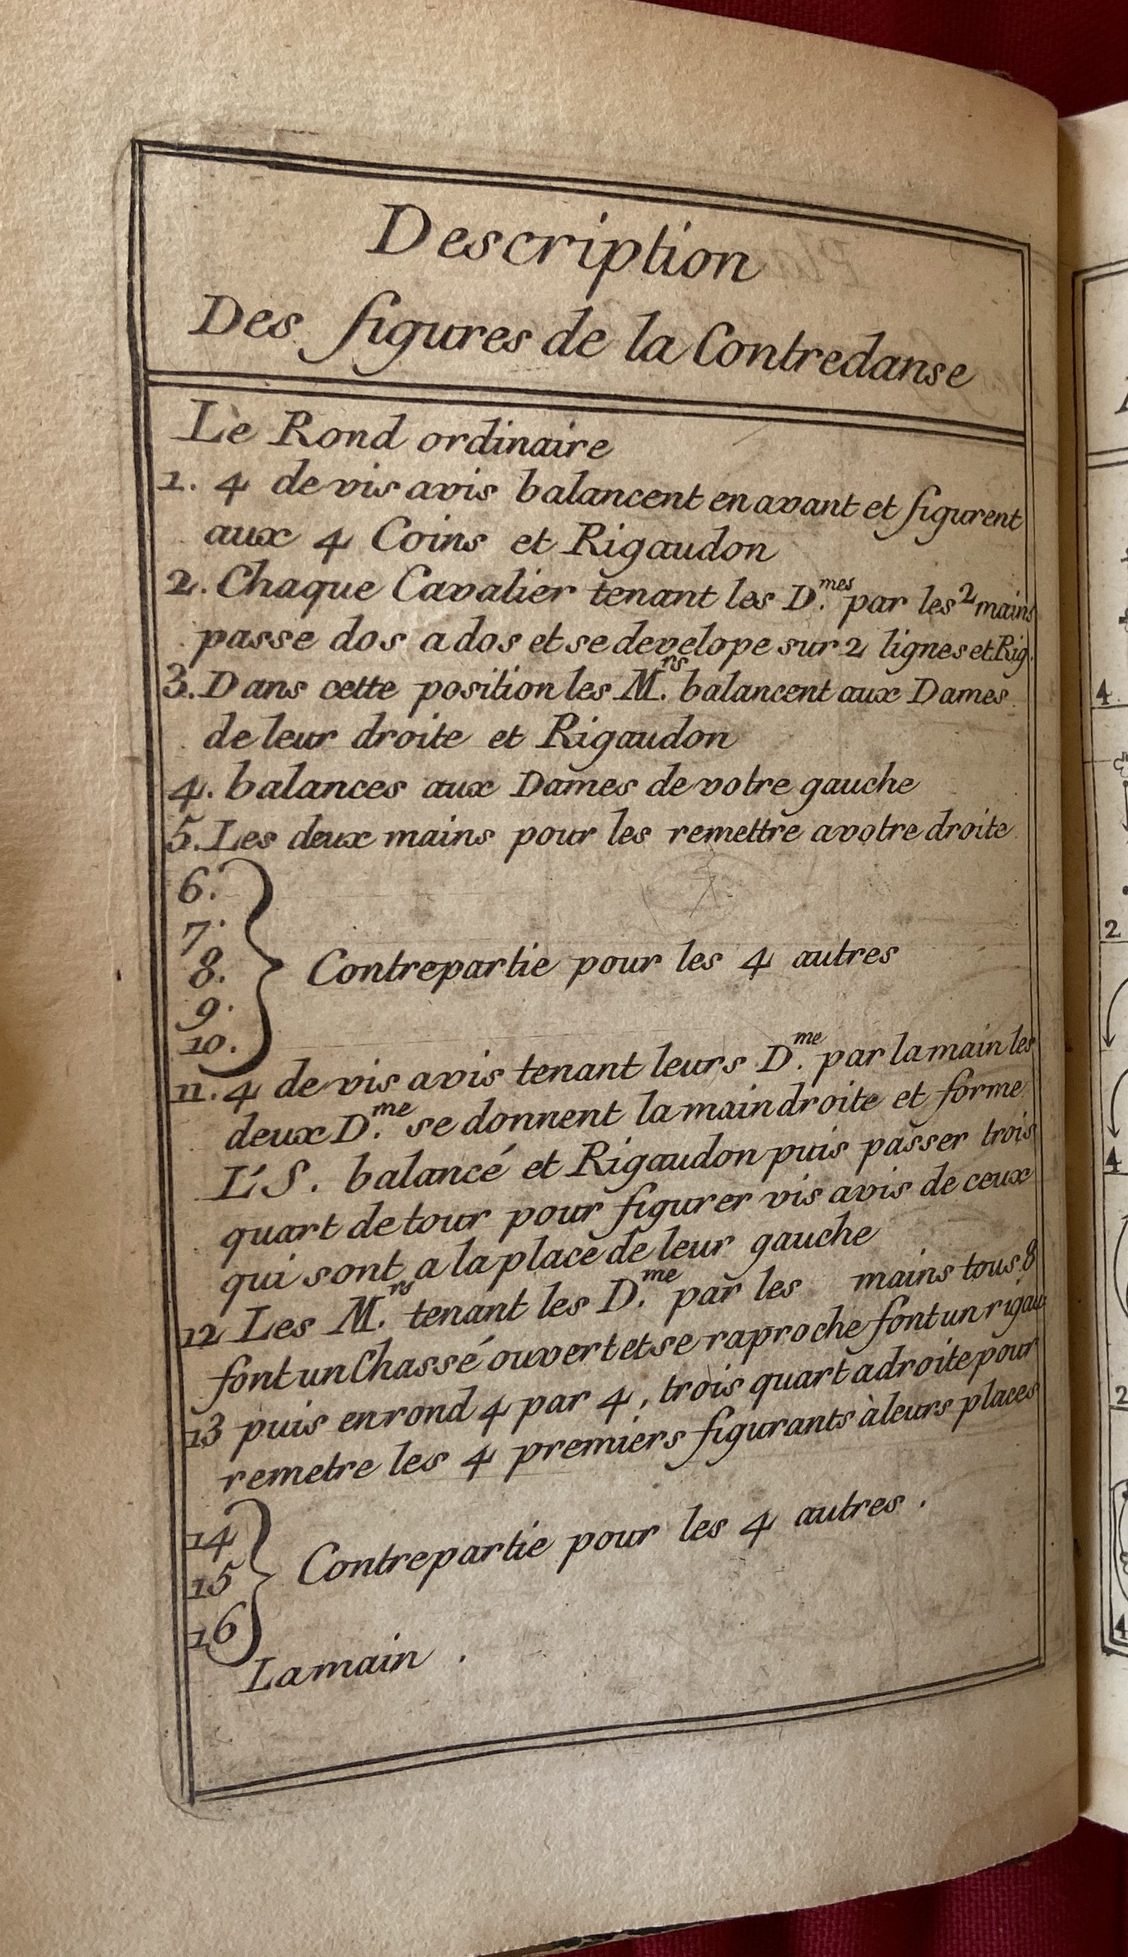 Description
Des figures de la Contredanse
Le Rond ordinaire
1. 4 de vis avis balancent en avant et figurent
aux 4 Coins et Rigaudon
2. Chaque Cavalier tenant les D.mes par les 2 mains
passe dos a dos et se develope sur 2 lignes et Rig.
3. Dans cette position les M.rs balancent aux Dames
de leur droite et Rigaudon
4. balances aux Dames de votre gauche
5. Les deux mains pour les remettre a votre droite
6.
7.
8. Contrepartie pour les 4 autres
9.
10.
11. 4 de vis avis tenant leurs D.me par la main les
deux D.me se donnent la main droite et forme
L'S. balancé et Rigaudon puis passer trois
quart de tour pour figurer vis avis de ceux
qui sont a la place de leur gauche
12 Les M.rs tenant les D.me par les mains tous 8
font un Chassé ouvert et se raproche font un rigau
13 puis en rond 4 par 4, trois quart a droite pour
remetre les 4 premiers figurants à leurs places
14
15 Contrepartie pour les 4 autres.
16
La main.
4
2
4
2
4